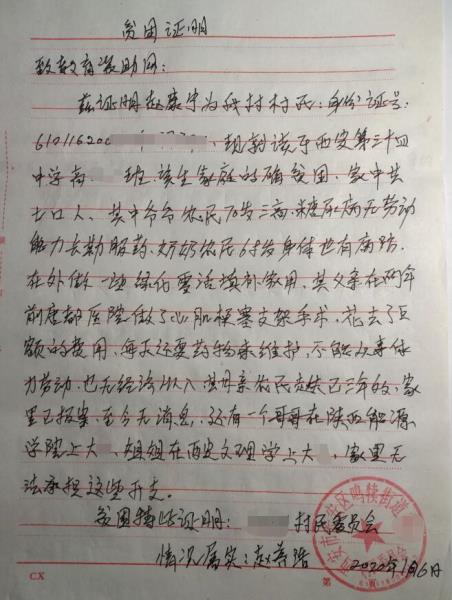 贫困证明
致教育资助网：
兹证明赵康宁为我村村民：身份证号：
61011620 现就读于西安第三十四
中学高 班，该生家庭的确贫困，家中共
七口人、其中爷爷农民70岁三病，糖尿病无劳动
能力长期服药、奶奶农民64岁身体也有病，
在外做一些绿化零活填补家用，其父亲在两年
前唐都医院做了心肌梗塞支架手术，花去了巨
额的费用，每天还要药物来维护，不能从事体
力劳动，也无经济收入，其母亲农民走失已三年多，家
里已报案，至今无消息，还有一个哥哥在陕西能源
学院上大 、姐姐在西安文理学上大 ，家里无
法承担这些开支。
贫困特此证明： 村民委员会
情况属实：赵 2020年1月6日
区鸣犊街道
CX
第 页